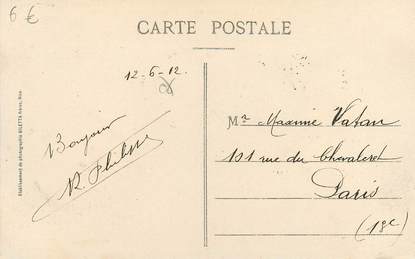 6 €
CARTE POSTALE
12-6-12
Bonjour
Mr Maxime Vatan
191 rue du Chevaleret
Paris
(13e)
Etablissement de photographie BILETTA Frères, Nice